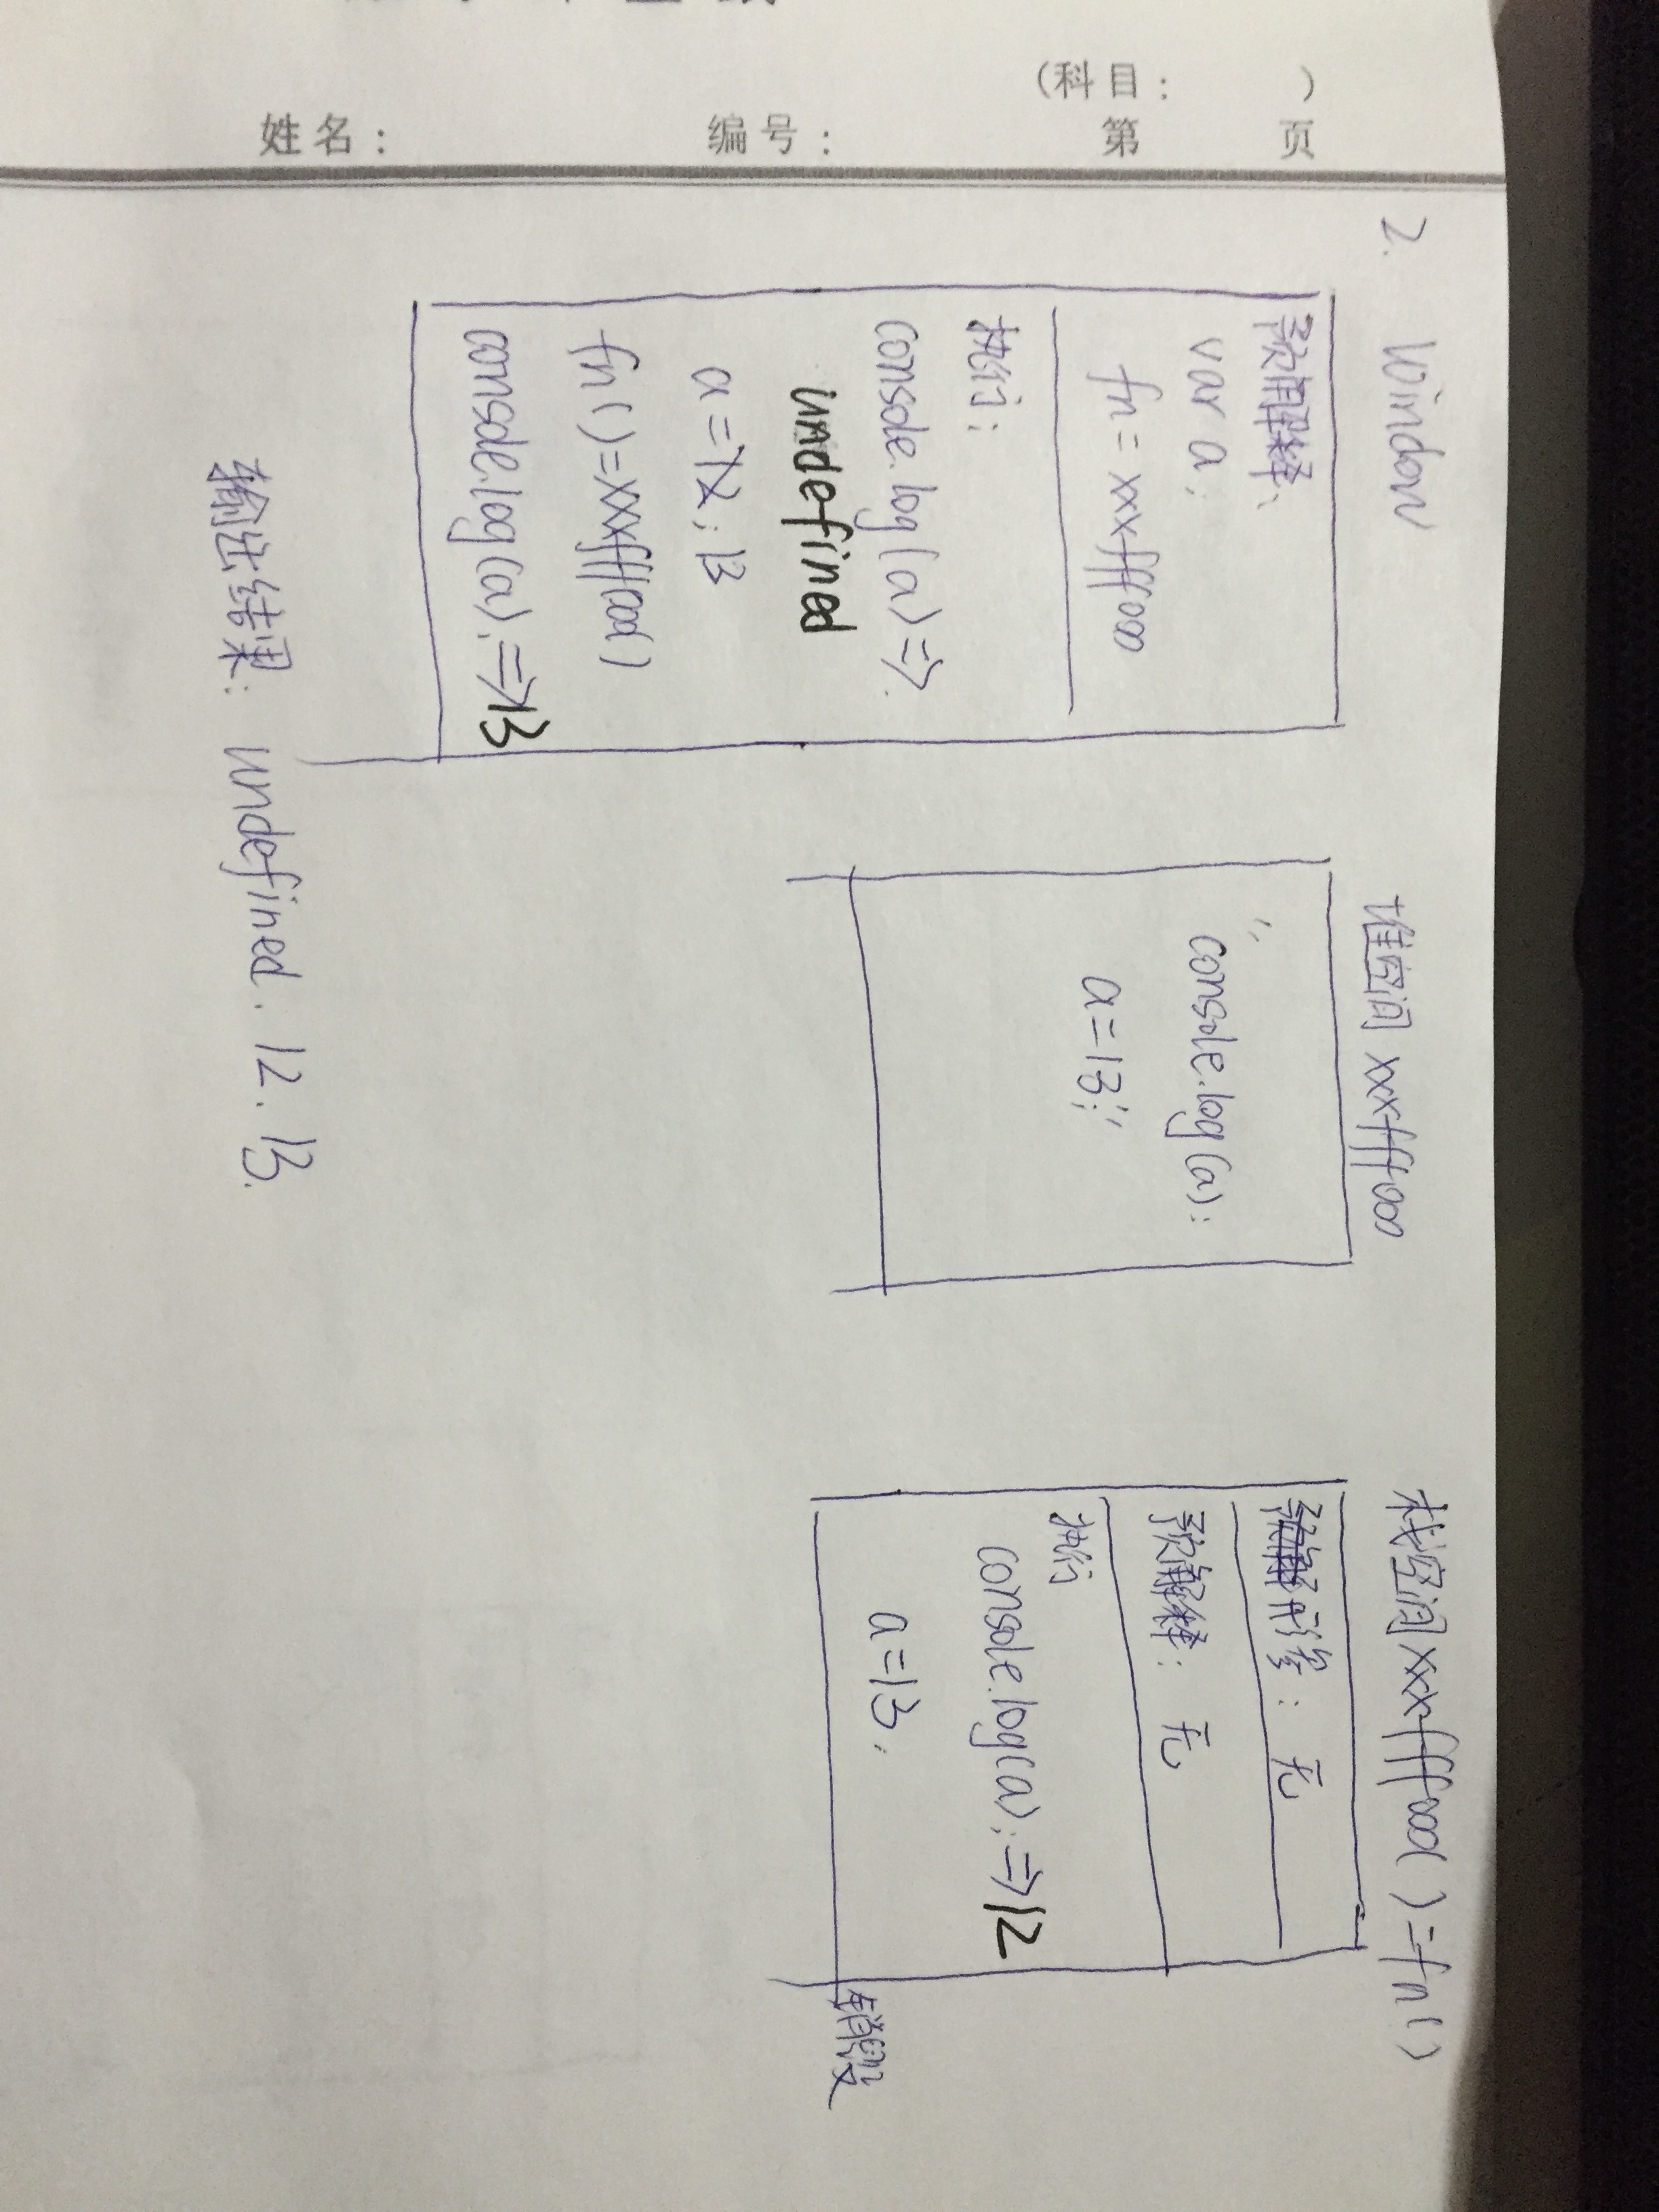 (科目: )
姓名: 编号: 第 页
2. Window
预解释、
var a;
fn = xxxfff000
执行:
console.log(a) =>
undefined
a = 12; 13
fn ( ) = xxxfff000( )
console.log(a); => 13
堆空间 xxxfff000
"
console.log(a);
a = 13;"
栈空间 xxxfff000( ) = fn ( )
形参: 无
预解释: 无
执行
console.log(a); => 12
a = 13;
销毁
输出结果: undefined. 12. 13.